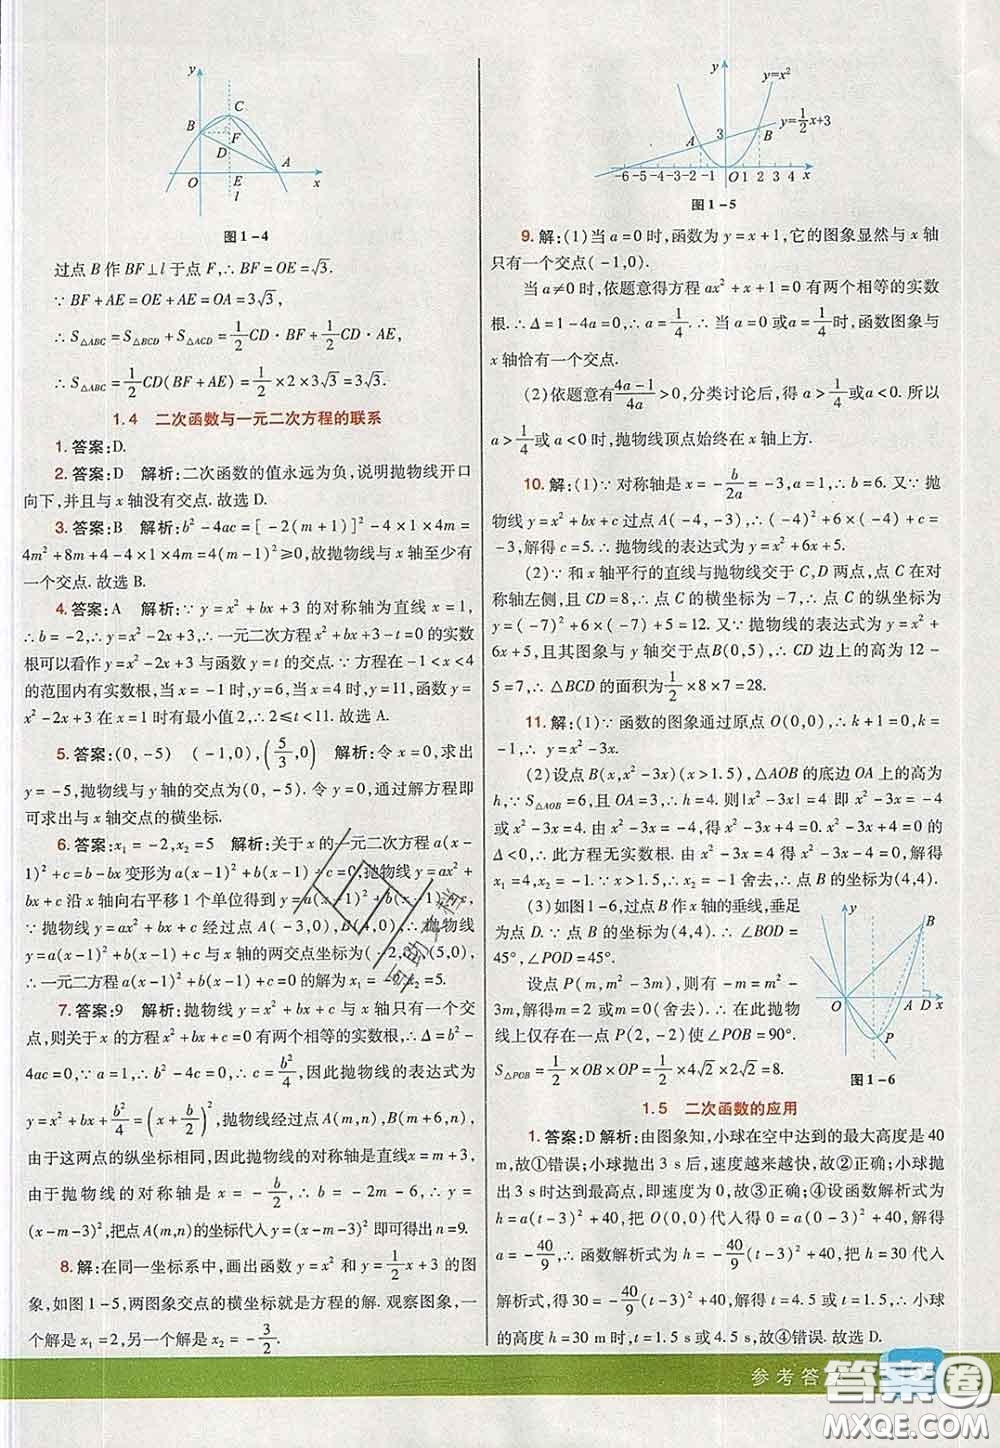 y
B
C
F
D
A
O
E
x
l
图1-4
过点 B 作 BF⊥l 于点 F,∴ BF=OE=√3.
∵ BF+AE=OE+AE=OA=3√3,
∴ S△ABC=S△BCD+S△ACD=1/2CD·BF+1/2CD·AE,
∴ S△ABC=1/2CD(BF+AE)=1/2×2×3√3=3√3.
1.4 二次函数与一元二次方程的联系
1. 答案:D.
2. 答案:D 解析:二次函数的值永远为负,说明抛物线开口
向下,并且与 x 轴没有交点.故选 D.
3. 答案:B 解析:b²-4ac=[-2(m+1)]²-4×1×4m=
4m²+8m+4-4×1×4m=4(m-1)²≥0,故抛物线与 x 轴至少有
一个交点.故选 B.
4. 答案:A 解析:∵ y=x²+bx+3 的对称轴为直线 x=1,
∴ b=-2,∴ y=x²-2x+3,∴ 一元二次方程 x²+bx+3-t=0 的实数
根可以看作 y=x²-2x+3 与函数 y=t 的交点.∵ 方程在-1<x<4
的范围内有实数根,当 x=-1 时,y=6,当 x=4 时,y=11,函数 y=
x²-2x+3 在 x=1 时有最小值 2,∴ 2≤t<11.故选 A.
5. 答案:(0,-5) (-1,0),(5/3,0) 解析:令 x=0,求出
y=-5,抛物线与 y 轴的交点为(0,-5).令 y=0,通过解方程即
可求出与 x 轴交点的横坐标.
6. 答案:x₁=-2,x₂=5 解析:关于 x 的一元二次方程 a(x-
1)²+c=b-bx 变形为 a(x-1)²+b(x-1)+c=0,把抛物线 y=ax²+
bx+c 沿 x 轴向右平移 1 个单位得到 y=a(x-1)²+b(x-1)+c,
∵ 抛物线 y=ax²+bx+c 经过点 A(-3,0),B(4,0),∴ 抛物线
y=a(x-1)²+b(x-1)+c 与 x 轴的两交点坐标为(-2,0),(5,0),
∴ 一元二次方程 a(x-1)²+b(x-1)+c=0 的解为 x₁=-2,x₂=5.
7. 答案:9 解析:抛物线 y=x²+bx+c 与 x 轴只有一个交
点,则关于 x 的方程 x²+bx+c=0 有两个相等的实数根,∴ Δ=b²-
4ac=0,∴ b²-4c=0,∴ c=b²/4,因此抛物线的表达式为
y=x²+bx+b²/4=(x+b/2)²,抛物线经过点 A(m,n),B(m+6,n),
由于这两点的纵坐标相同,因此抛物线的对称轴是直线 x=m+3,
由于抛物线的对称轴是 x=-b/2,∴ -b/2=m+3,∴ y=
(x-m-3)²,把点 A(m,n)的坐标代入 y=(x-m-3)² 即可得出 n=9.
8. 解:在同一坐标系中,画出函数 y=x² 和 y=1/2x+3 的图
象,如图 1-5,两图象交点的横坐标就是方程的解.观察图象,一
个解是 x₁=2,另一个解是 x₂=-3/2.
y
y=x²
y=1/2x+3
3
A
B
-6 -5 -4 -3 -2 -1 O 1 2 3 4 x
图1-5
9. 解:(1)当 a=0 时,函数为 y=x+1,它的图象显然与 x 轴
只有一个交点(-1,0).
当 a≠0 时,依题意得方程 ax²+x+1=0 有两个相等的实数
根.∴ Δ=1-4a=0,∴ a=1/4.∴ 当 a=0 或 a=1/4 时,函数图象与
x 轴恰有一个交点.
(2)依题意有 4a-1/4a>0,分类讨论后,得 a>1/4 或 a<0.所以
a>1/4 或 a<0 时,抛物线顶点始终在 x 轴上方.
10. 解:(1)∵ 对称轴是 x=-b/2a=-3,a=1,∴ b=6.又∵ 抛
物线 y=x²+bx+c 过点 A(-4,-3),∴ (-4)²+6×(-4)+c=
-3,解得 c=5.∴ 抛物线的表达式为 y=x²+6x+5.
(2)∵ 和 x 轴平行的直线与抛物线交于 C,D 两点,点 C 在对
称轴左侧,且 CD=8,∴ 点 C 的横坐标为-7,∴ 点 C 的纵坐标为
y=(-7)²+6×(-7)+5=12.又∵ 抛物线的表达式为 y=x²+
6x+5,且其图象与 y 轴交于点B(0,5),∴ CD 边上的高为 12-
5=7,∴ △BCD 的面积为1/2×8×7=28.
11. 解:(1)∵ 函数的图象通过原点 O(0,0),∴ k+1=0,k=
-1,∴ y=x²-3x.
(2)设点 B(x,x²-3x)(x>1.5),△AOB 的底边 OA 上的高为
h,∵ S△AOB=6,且 OA=3,∴ h=4.则|x²-3x|=4 即 x²-3x=-4
或 x²-3x=4.当 x²-3x=-4 即 x²-3x+4=0 时,
Δ<0,∴ 此方程无实数根.由 x²-3x=4 即 x²-3x-4=0,解得
x₁=4,x₂=-1.∵ x>1.5,∴ x=-1 舍去,∴ 点 B 的坐标为(4,4).
(3)如图 1-6,过点 B 作 x 轴的垂线,垂足
为点 D.∵ 点 B 的坐标为(4,4).∴ ∠BOD=
45°,∠POD=45°.
设点 P(m,m²-3m),则有-m=m²-
3m,解得 m=2 或 m=0(舍去).∴ 在此抛物
线上仅存在一点 P(2,-2)使∠POB=90°.
S△POB=1/2×OB×OP=1/2×4√2×2√2=8.
y
B
O
A D x
P
图1-6
1.5 二次函数的应用
1. 答案:D 解析:由图象知,小球在空中达到的最大高度是 40
m,故①错误;小球抛出 3 s 后,速度越来越快,故②正确;小球抛
出 3 s 时达到最高点,即速度为 0,故③正确;④设函数解析式为
h=a(t-3)²+40,把 O(0,0)代入得 0=a(0-3)²+40,解得
a=-40/9,∴ 函数解析式为 h=-40/9(t-3)²+40,把 h=30 代入
解析式,得 30=-40/9(t-3)²+40,解得 t=4.5 或 t=1.5,∴ 小球
的高度 h=30 m 时,t=1.5 或 4.5 s,故④错误.故选 D.
参考答
答案卷
MXQE.COM